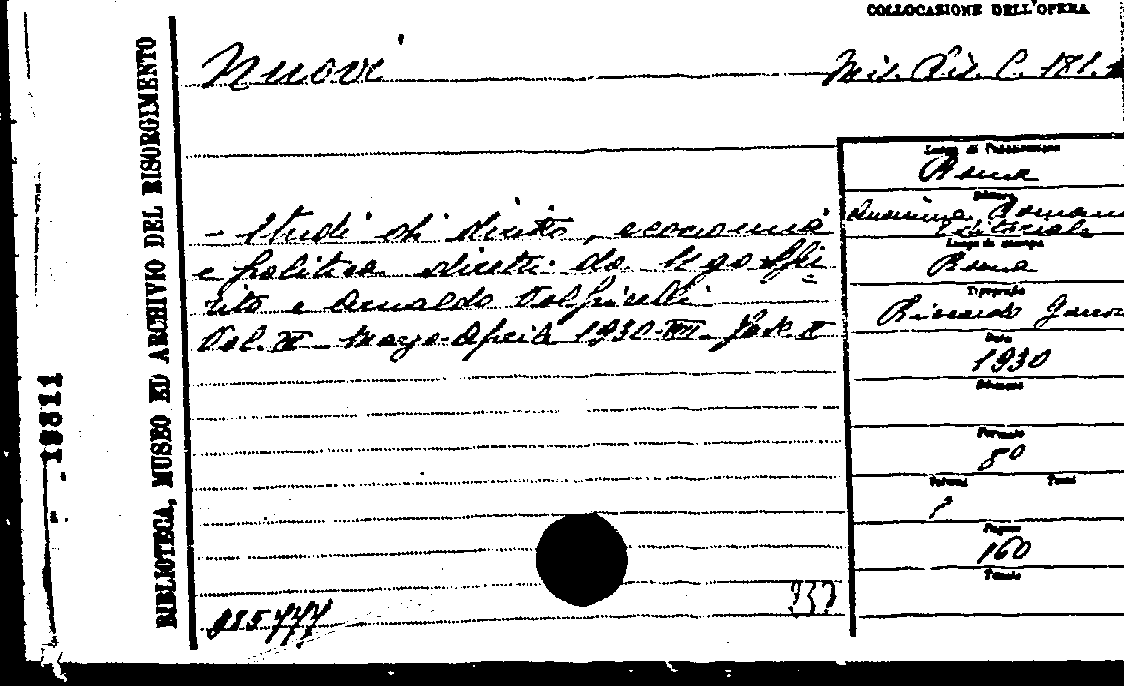 COLLOCASIONE DELL'OPERA
Nuovi
Mis. Ris. C. 181.
BIBLIOTECA, MUSEO ED ARCHIVIO DEL RISORGIMENTO
- Studi di diritto, economia
e politica diretti da Ugo Spi
rito e Arnaldo Volpicelli
Vol. III - Marzo-Aprile 1930-VIII - Fasc. II
Luogo di Pubblicazione
Roma
Editore
Anonima Romana
Editoriale
Luogo di stampa
Roma
Tipografia
Riccardo
Data
1930
Edizione
Formato
8°
Volumi Tomi
1
Pagine
160
Tavole
237